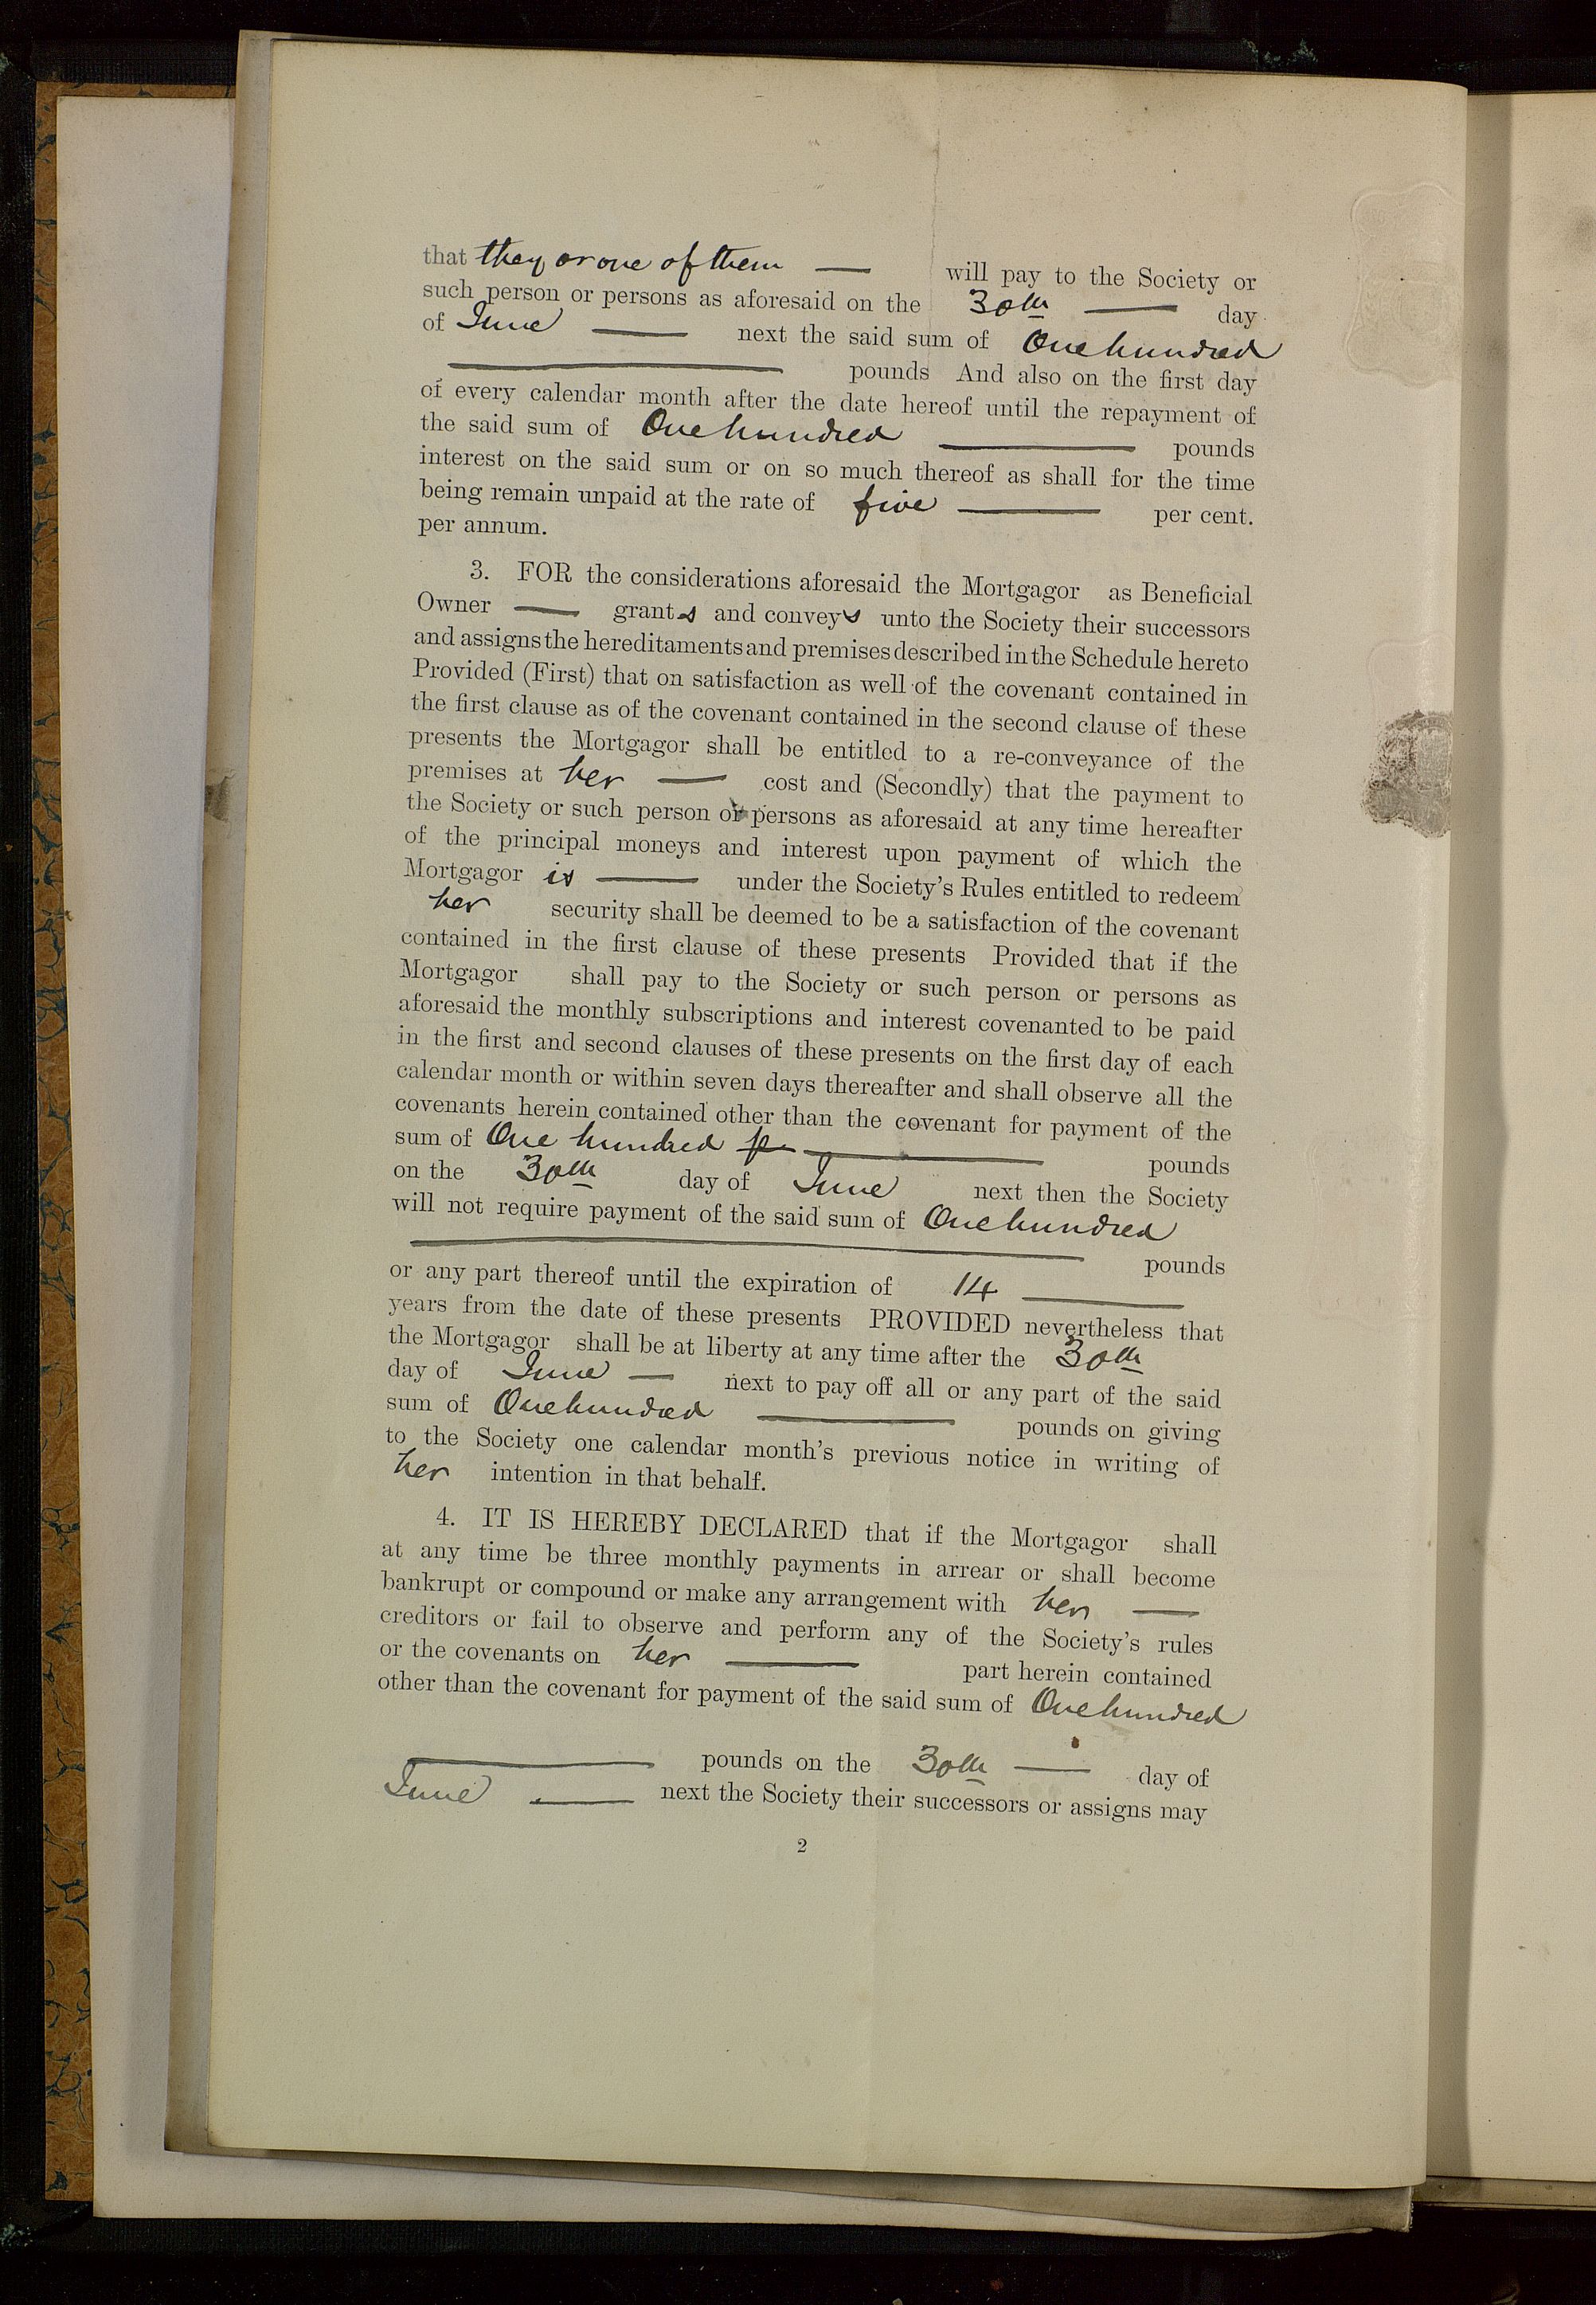 that they or one of them — will pay to the Society or
such person or persons as aforesaid on the 30th — day
of June — next the said sum of One hundred
— pounds And also on the first day
of every calendar month after the date hereof until the repayment of
the said sum of One hundred — pounds
interest on the said sum or on so much thereof as shall for the time
being remain unpaid at the rate of five — per cent.
per annum.
3. FOR the considerations aforesaid the Mortgagor as Beneficial
Owner — grants and conveys unto the Society their successors
and assigns the hereditaments and premises described in the Schedule hereto
Provided (First) that on satisfaction as well of the covenant contained in
the first clause as of the covenant contained in the second clause of these
presents the Mortgagor shall be entitled to a re-conveyance of the
premises at her — cost and (Secondly) that the payment to
the Society or such person or persons as aforesaid at any time hereafter
of the principal moneys and interest upon payment of which the
Mortgagor is — under the Society's Rules entitled to redeem
her security shall be deemed to be a satisfaction of the covenant
contained in the first clause of these presents Provided that if the
Mortgagor shall pay to the Society or such person or persons as
aforesaid the monthly subscriptions and interest covenanted to be paid
in the first and second clauses of these presents on the first day of each
calendar month or within seven days thereafter and shall observe all the
covenants herein contained other than the covenant for payment of the
sum of One hundred — pounds
on the 30th day of June next then the Society
will not require payment of the said sum of One hundred
— pounds
or any part thereof until the expiration of 14 —
years from the date of these presents PROVIDED nevertheless that
the Mortgagor shall be at liberty at any time after the 30th
day of June — next to pay off all or any part of the said
sum of One hundred — pounds on giving
to the Society one calendar month's previous notice in writing of
her intention in that behalf.
4. IT IS HEREBY DECLARED that if the Mortgagor shall
at any time be three monthly payments in arrear or shall become
bankrupt or compound or make any arrangement with her —
creditors or fail to observe and perform any of the Society's rules
or the covenants on her — part herein contained
other than the covenant for payment of the said sum of One hundred
— pounds on the 30th — day of
June — next the Society their successors or assigns may
2